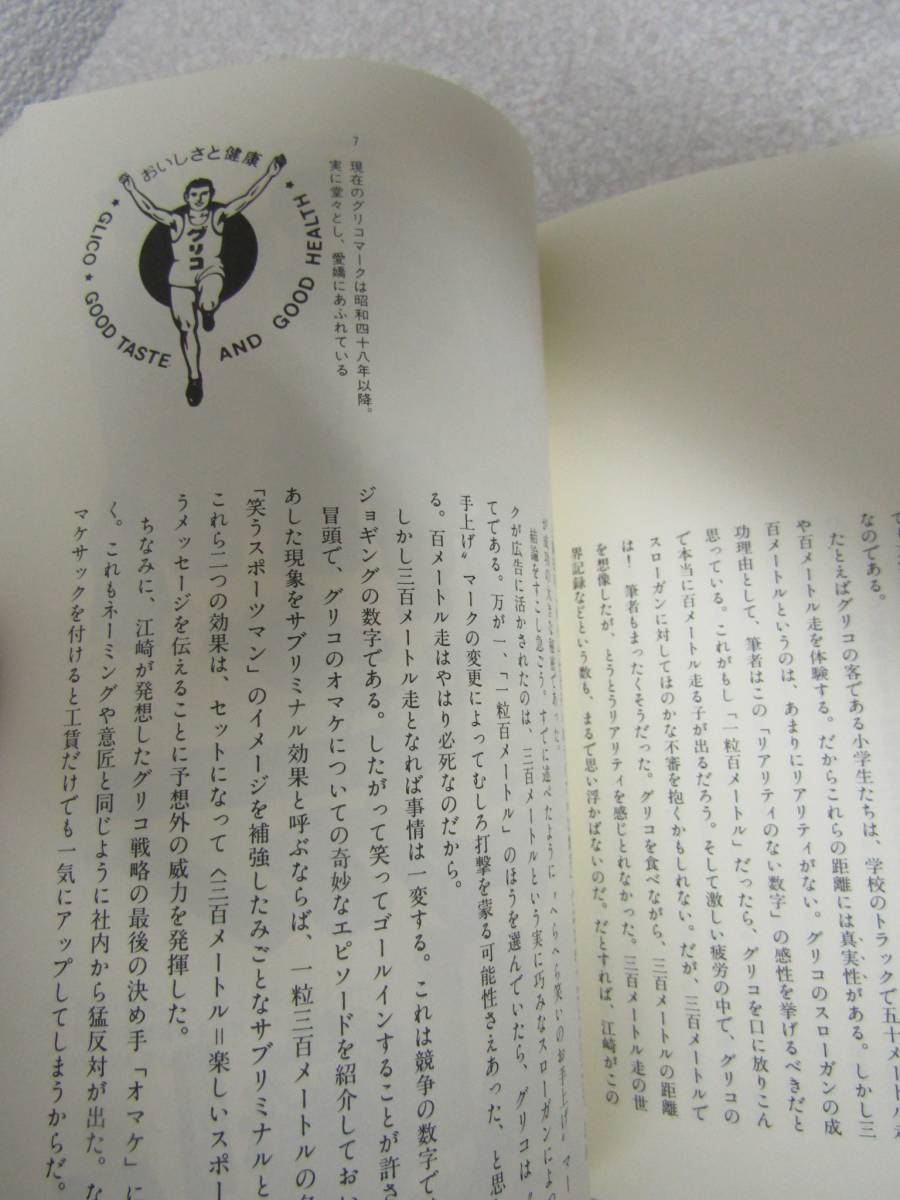 なのである。
たとえばグリコの客である小学生たちは、学校のトラックで五十メートル
や百メートル走を体験する。だからこれらの距離には真実性がある。しかし三
百メートルというのは、あまりにリアリティがない。グリコのスローガンの成
功理由として、筆者はこの「リアリティのない数字」の感性を挙げるべきだと
思っている。これがもし「一粒百メートル」だったら、グリコを口に放りこん
で本当に百メートル走る子が出るだろう。そして激しい疲労の中で、グリコの
スローガンに対してほのかな不審を抱くかもしれない。だが、三百メートルで
は! 筆者もまったくそうだった。グリコを食べながら、三百メートルの距離
を想像したが、とうとうリアリティを感じとれなかった。三百メートル走の世
界記録などという数も、まるで思い浮かばないのだ。だとすれば、江崎がこの
7 現在のグリコマークは昭和四十八年以降。
実に堂々とし、愛嬌にあふれている
おいしさと健康
グリコ
GLICO GOOD TASTE AND GOOD HEALTH
結論をすこし急ごう。すでに述べたように〝へらへら笑いのお手上げ〟マー
クが広告に活かされたのは、三百メートルという実に巧みなスローガンによっ
てである。万が一、「一粒百メートル」のほうを選んでいたら、グリコは〝
手上げ〟マークの変更によってむしろ打撃を蒙る可能性さえあった、と思
る。百メートル走はやはり必死なのだから。
しかし三百メートル走となれば事情は一変する。これは競争の数字で
ジョギングの数字である。したがって笑ってゴールインすることが許さ
冒頭で、グリコのオマケについての奇妙なエピソードを紹介してお
あした現象をサブリミナル効果と呼ぶならば、一粒三百メートルの
「笑うスポーツマン」のイメージを補強したみごとなサブリミナルと
これら二つの効果は、セットになって〈三百メートル=楽しいスポー
うメッセージを伝えることに予想外の威力を発揮した。
ちなみに、江崎が発想したグリコ戦略の最後の決め手「オマケ」に
く。これもネーミングや意匠と同じように社内から猛反対が出た。な
マケサックを付けると工賃だけでも一気にアップしてしまうからだ。